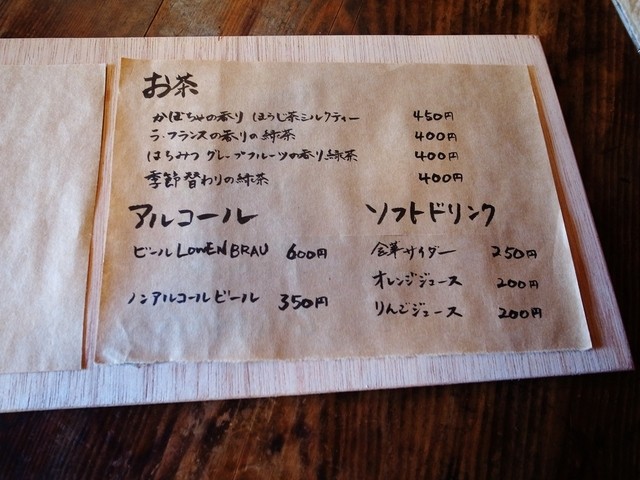 お茶
かぼちゃの香り ほうじ茶シルクティー 450円
ラ・フランスの香りの緑茶 400円
はちみつ グレープフルーツの香り緑茶 400円
季節替わりの緑茶 400円
アルコール
ビール LOWENBRAU 600円
ノンアルコールビール 350円
ソフトドリンク
会津サイダー 250円
オレンジジュース 200円
りんごジュース 200円